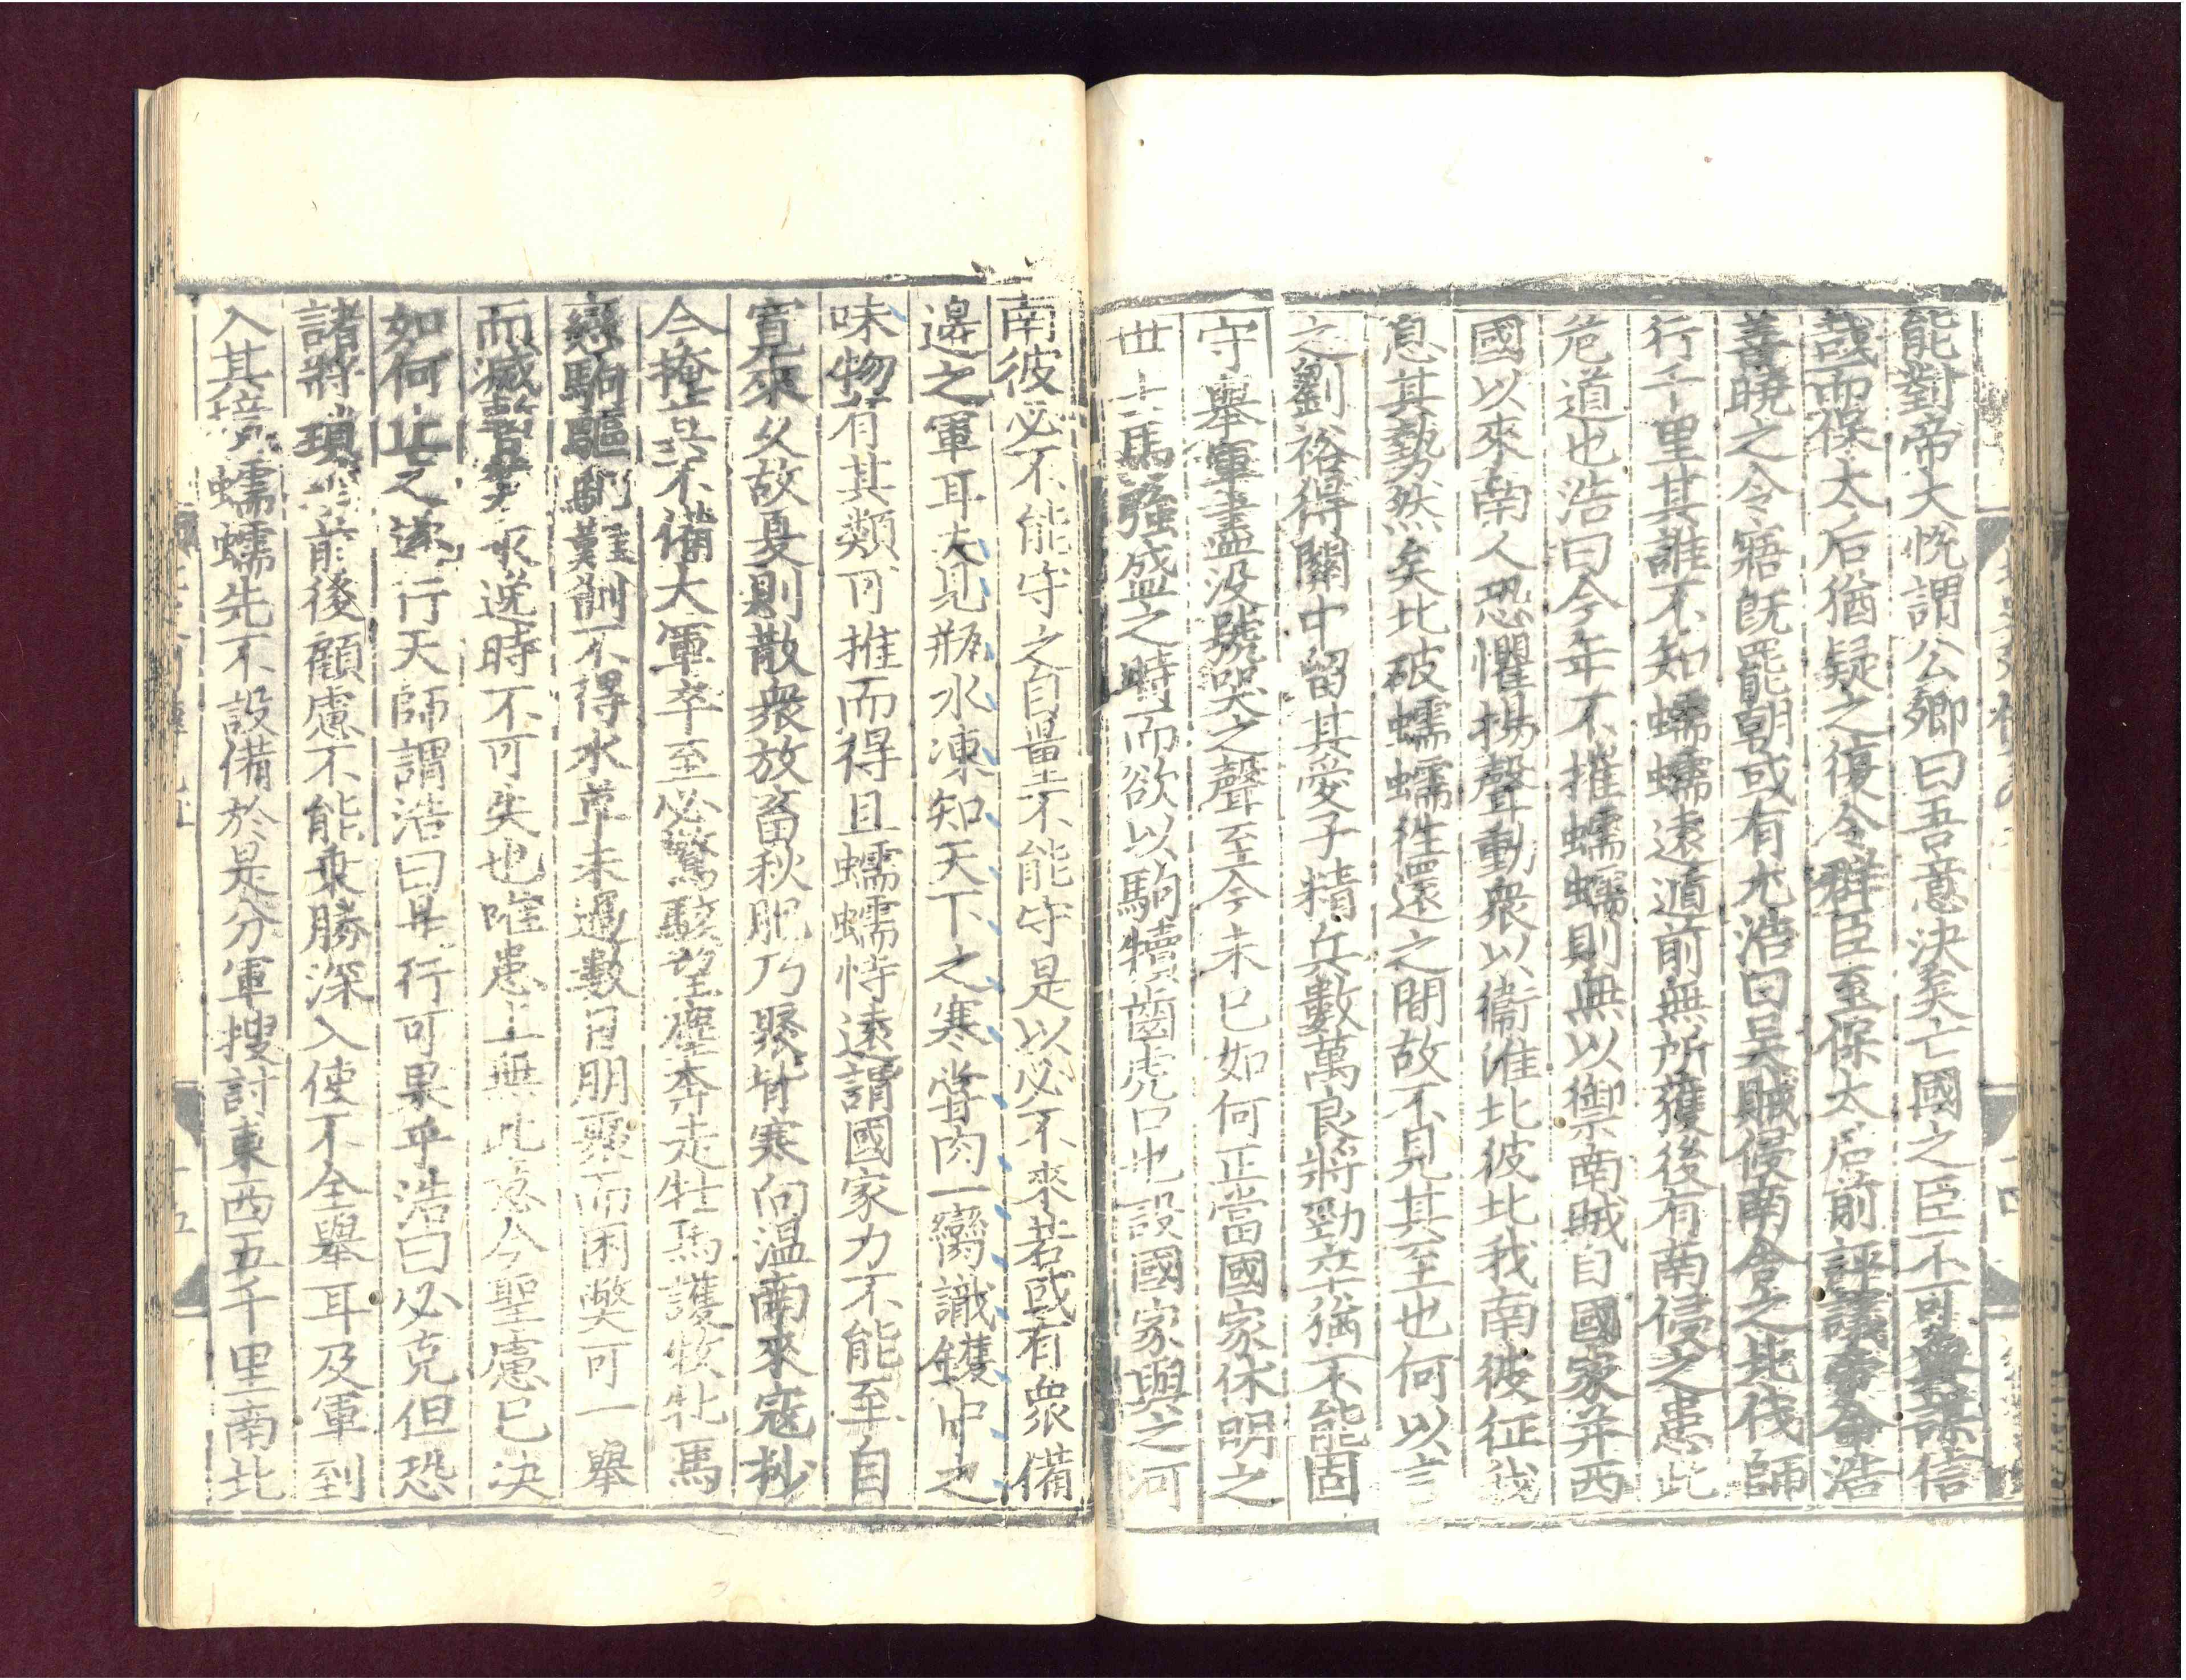 能對帝大悅謂公卿曰吾意決矣亡國之臣不可與謀信
哉而保太后猶疑之復令群臣至保太后前評議帝命浩
善曉之令寤旣罷朝或有尤浩曰吴賊侵南舍之北伐師
行千里其誰不知蠕蠕遠遁前無所獲後有南侵之患此
危道也浩曰今年不摧蠕蠕則無以禦南賊自國家并西
國以來南人恐懼揚聲動衆以衞淮北彼北我南彼征我
息其勢然矣比破蠕蠕徃還之間故不見其至也何以言
之劉裕得關中留其愛子精兵數萬良將勁卒猶不能固
守舉軍盡没號哭之聲至今未已如何正當國家休明之
世士馬強盛之時而欲以駒犢齒虎口也設國家與之河
南彼必不能守之自量不能守是以必不來若或有衆備
邊之軍耳夫見瓶水凍知天下之寒嘗肉一臠識鑊中之
味物有其類可推而得且蠕蠕恃遠謂國家力不能至自
寬來久故夏則散衆放畜秋肥乃聚背寒向温南來寇抄
今掩其不備大軍卒至必驚駭望塵奔走牡馬護牧牝馬
戀駒驅馳難制不得水草未過數日朋聚而困弊可一舉
而滅暫勞永逸時不可失也唯患上無此意今聖慮已決
如何止之遂行天師謂浩曰是行可果乎浩曰必克但恐
諸將瑣瑣前後顧慮不能乗勝深入使不全舉耳及軍到
入其境蠕蠕先不設備於是分軍搜討東西五千里南北
十四
十五